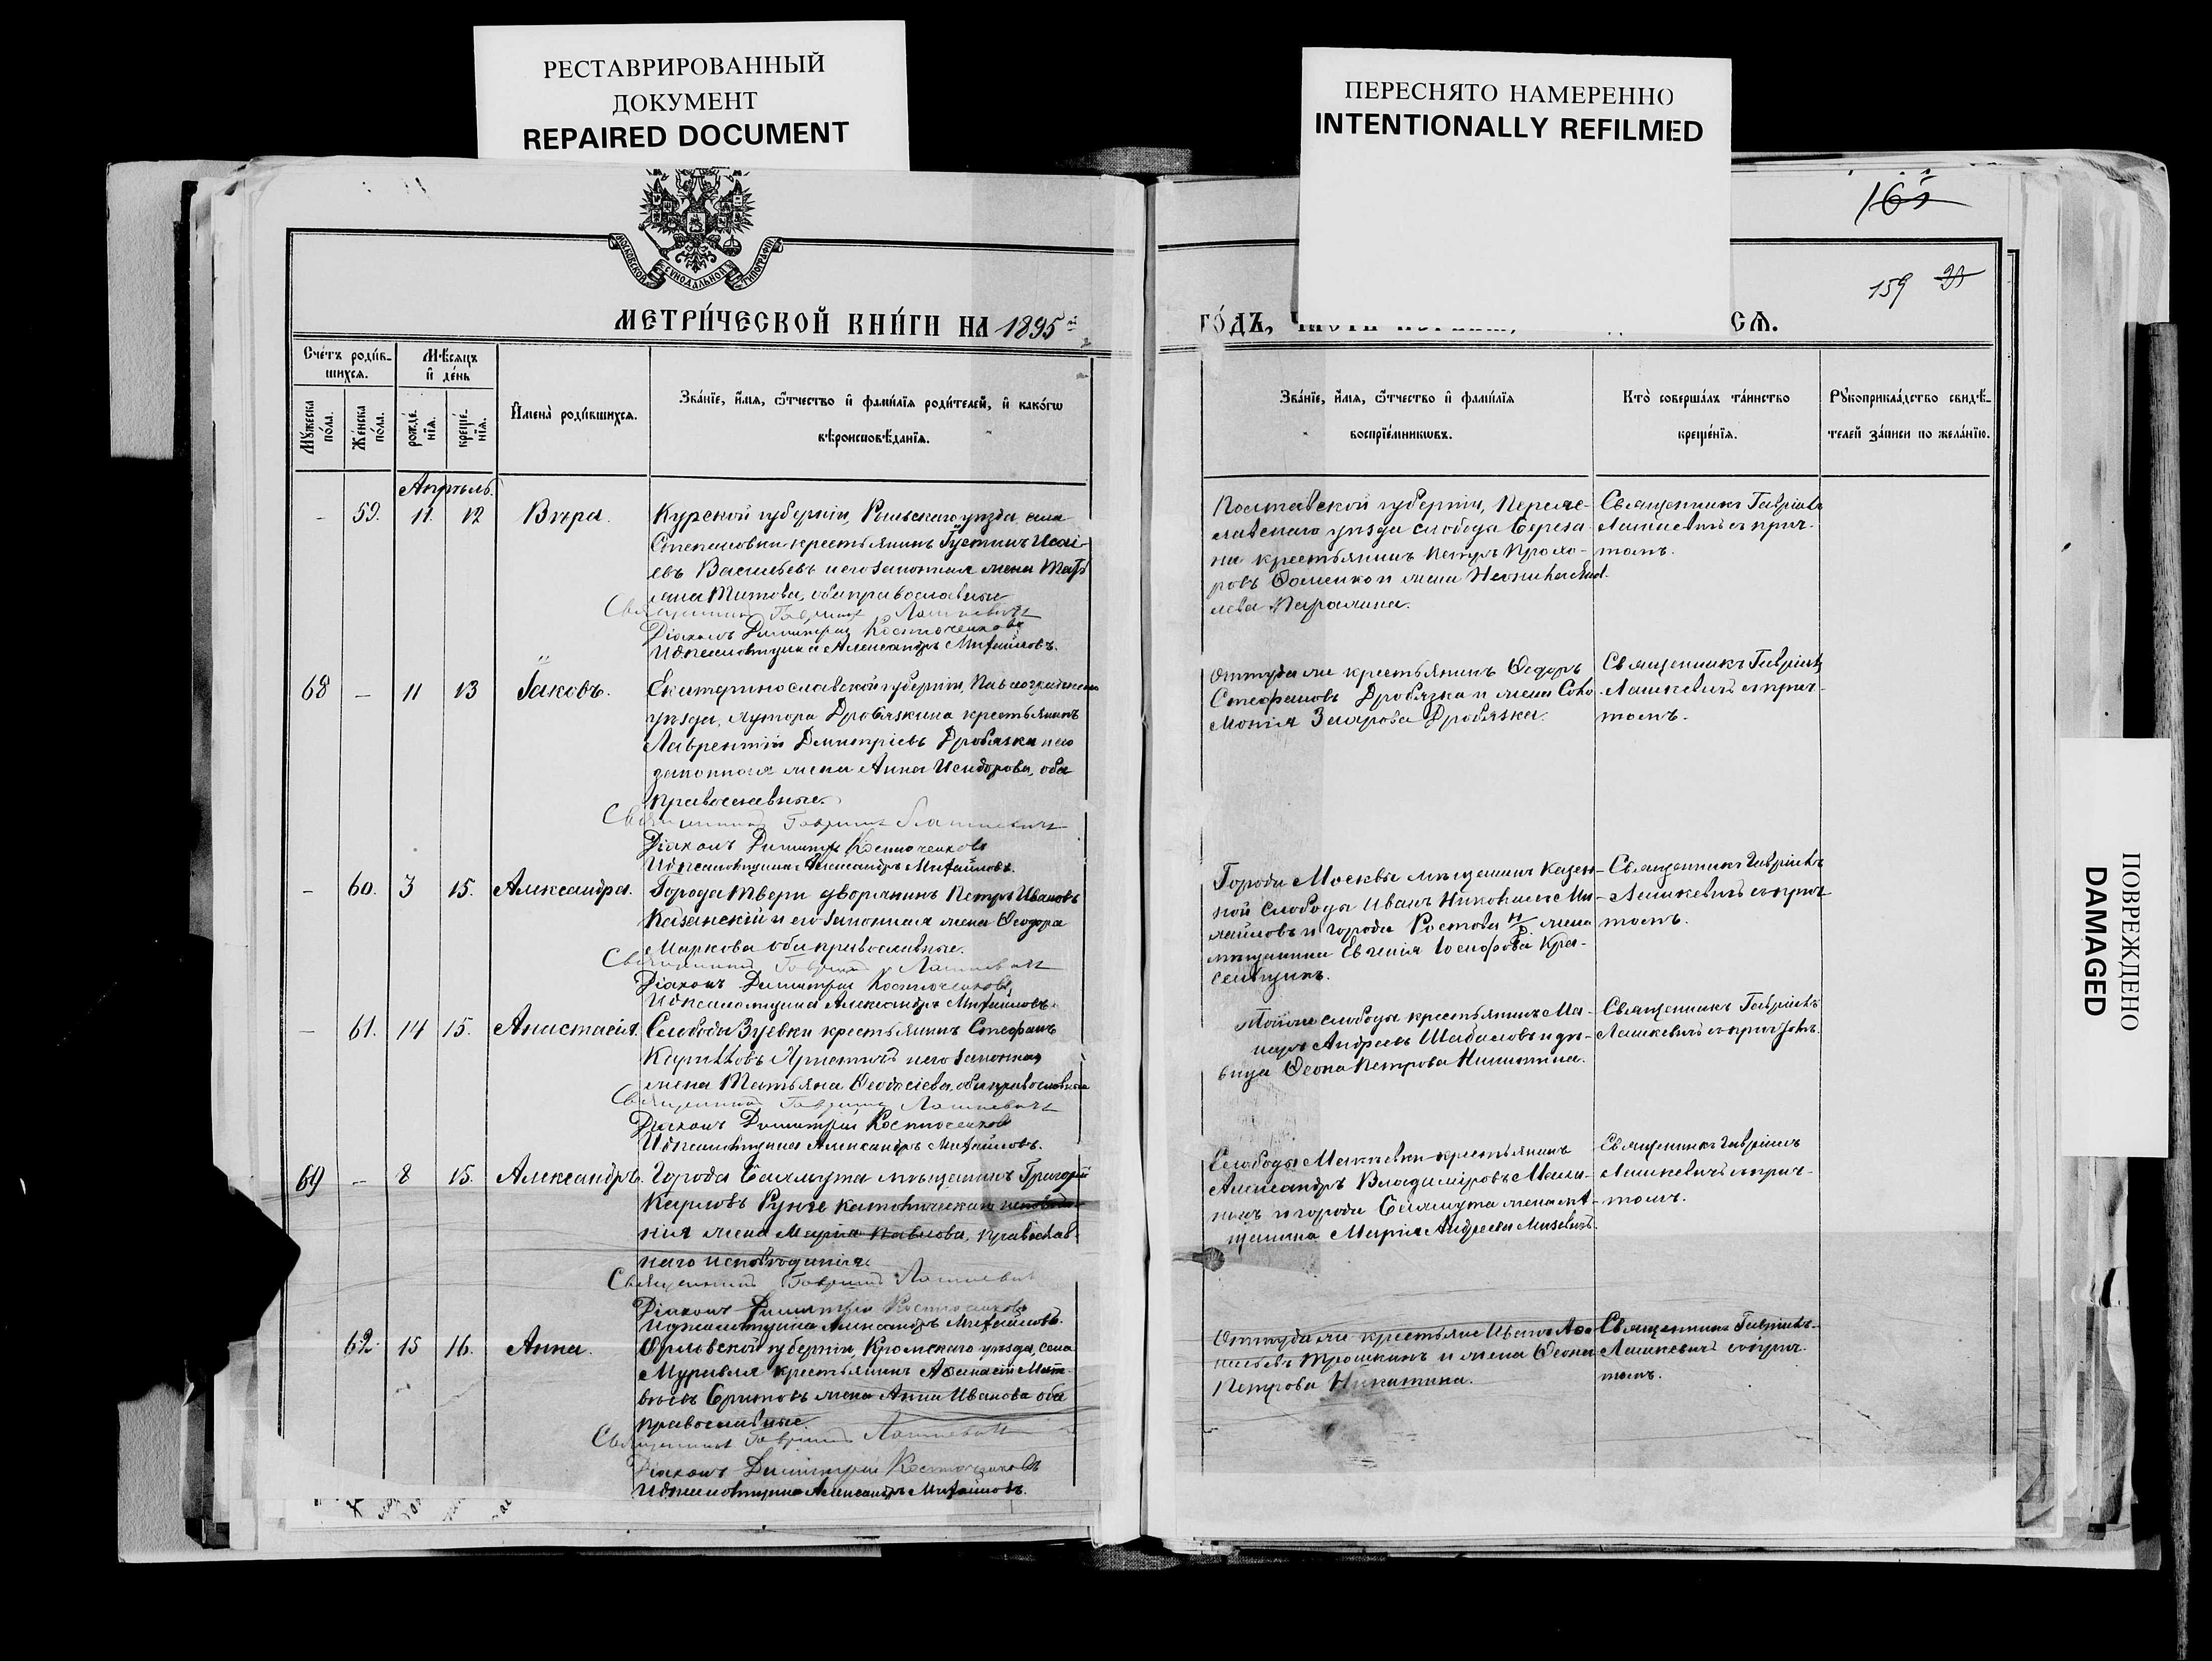 РЕСТАВРИРОВАННЫЙ
ДОКУМЕНТ
REPAIRED DOCUMENT
ПЕРЕСНЯТО НАМЕРЕННО
INTENTIONALLY REFILMED
МОСКОВСКОЙ СѴНОДАЛЬНОЙ ТИПОГРАФІИ
165
159
МЕТРИ́ЧЕСКОЙ КНИ́ГИ НА 1895 й
ГО́ДЪ,
СЯ.
Сче́тъ роди́в-
шихся.
Мѣ́сяцъ
и҆ де́нь
Мꙋ́жеска по́ла.
Же́нска по́ла.
рожде́нїя.
креще́нїя.
И҆мена̀ роди́вшихся.
Зва́нїе, и҆́мя, ѻ҆́тчество и҆ фами́лїя роди́телей, и҆ како́гѡ
вѣроисповѣ́данїя.
Зва́нїе, и҆́мя, ѻ҆́тчество и҆ фами́лїя
воспрїе́мникѡвъ.
Кто̀ соверша́лъ та́инство
креще́нїя.
Рꙋкоприкла́дство свидѣ́-
телей за́писи по жела́нїю.
Апрѣль.
- 59. 11. 12 Вѣра.
Курской губерніи, Рыльскаго уѣзда, села
Степановки крестьянинъ Іустинъ Исаі-
евъ Васильевъ и его законная жена Тать
яна Титова, оба православные
Священникъ Гавріилъ Лашкевичъ
Діаконъ Димитрій Костюченковъ
И д псаломщика Александръ Михайловъ.
Полтавской губерніи, Переяс-
лавскаго уѣзда слобода Береза
на крестьянинъ Петръ Прохо-
ровъ Фоменко и жена
Священникъ Гавріилъ
Лашкевичъ съ прич-
томъ.
68 – 11 13 Іаковъ.
Екатеринославской губерніи, Павлоградскаго
уѣзда, хутора Дробязкина крестьянинъ
Лаврентій Димитріевъ Дробязка и его
законная жена Анна Исидорова, оба
православные.
Священникъ Гавріилъ Лашкевичъ
Діаконъ Димитрій Костюченковъ
И д псаломщика Александръ Михайловъ.
Оттуда же крестьянинъ Ѳедоръ
Стефановъ Дробязка и жена Соло
монія Захарова Дробязка.
Священникъ Гавріилъ
Лашкевичъ съ прич-
томъ.
- 60. 3 15. Александра.
Города Твери дворянинъ Петръ Ивановъ
Казанскій и его законная жена Ѳеодора
Маркова оба православные.
Священникъ Гавріилъ Лашкевичъ
Діаконъ Димитрій Костюченковъ
И д псаломщика Александръ Михайловъ.
Города Москвы мѣщанинъ Казен-
ной слободы Иванъ Николаевъ Ми-
хайловъ и города Ростова Н/Д. жена
мѣщанина Евгенія Іосифова Кра-
Священникъ Гавріилъ
Лашкевичъ съ прич-
томъ.
– 61. 14 15. Анастасія.
Слободы Зуевки крестьянинъ Стефанъ
Кирилловъ и его законная
жена Татьяна Ѳеодосіева, оба православные
Священникъ Гавріилъ Лашкевичъ
Діаконъ Димитрій Костюченковъ
И д псаломщика Александръ Михайловъ.
Той же слободы крестьянинъ Ма-
Андреевъ Шабаловъ и дѣ-
вица Ѳеона Петрова Никитина.
Священникъ Гавріилъ
Лашкевичъ съ причтомъ.
69 – 8 15. Александръ.
Города Бахмута мѣщанинъ Григорій
Карловъ Рунге католическаго исповѣда-
нія жена Марія Павлова, православ-
наго исповѣданія.
Священникъ Гавріилъ Лашкевичъ
Діаконъ Димитрій Костюченковъ
И д псаломщика Александръ Михайловъ.
Слободы Макѣевки крестьянинъ
Александръ Владиміровъ
и города Бахмута жена мѣ-
щанина Марія Андреева
Священникъ Гавріилъ
Лашкевичъ съ прич-
томъ.
62. 15 16. Анна.
Орловской губерніи, Кромскаго уѣзда, села
Муравля крестьянинъ Аѳанасій Мат-
вѣевъ жена Анна Иванова оба
православные.
Священникъ Гавріилъ Лашкевичъ
Діаконъ Димитрій Костюченковъ
И д псаломщика Александръ Михайловъ.
Оттуда же крестьяне Иванъ
Трошкинъ и жена Ѳеона
Петрова Никитина.
Священникъ Гавріилъ
Лашкевичъ съ прич-
томъ.
ПОВРЕЖДЕНО
DAMAGED